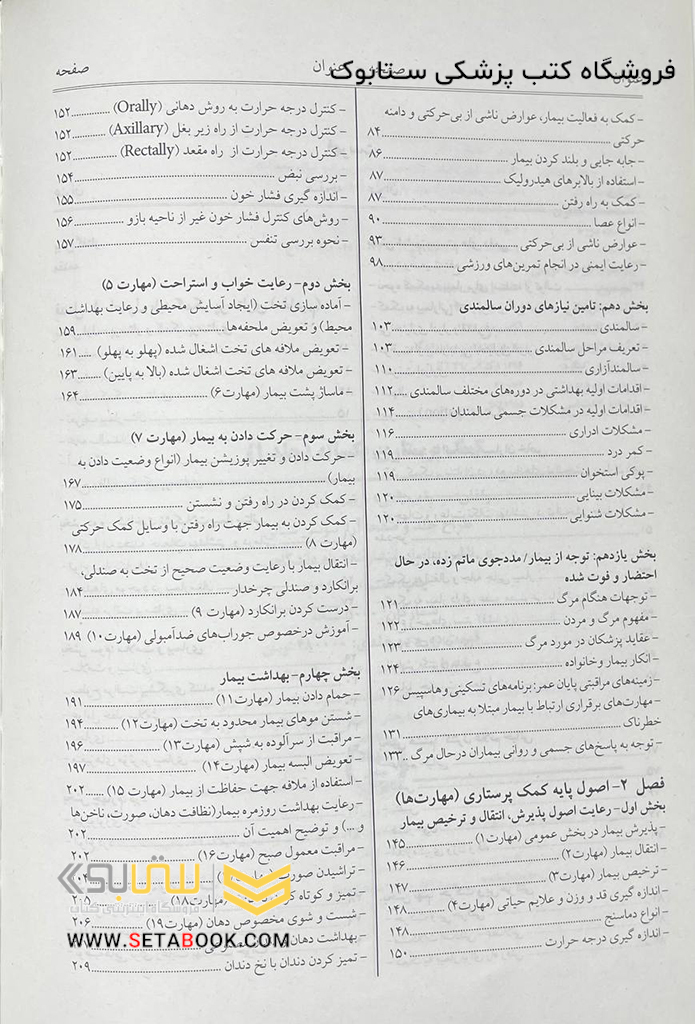 فروشگاه کتب پزشکی ستابوک
عنوان
صفحه
عنوان
صفحه
- کمک به فعالیت بیمار، عوارض ناشی از بی‌حرکتی و دامنه
حرکتی ۸۴
- جابه جایی و بلند کردن بیمار ۸۶
- استفاده از بالابرهای هیدرولیک ۸۷
- کمک به راه رفتن ۸۷
- انواع عصا ۹۰
- عوارض ناشی از بی‌حرکتی ۹۳
- رعایت ایمنی در انجام تمرین‌های ورزشی ۹۸
بخش دهم: تامین نیازهای دوران سالمندی
- سالمندی ۱۰۳
- تعریف مراحل سالمندی ۱۰۳
- سالمندآزاری ۱۱۰
- اقدامات اولیه بهداشتی در دوره‌های مختلف سالمندی ۱۱۲
- اقدامات اولیه در مشکلات جسمی سالمندان ۱۱۴
- مشکلات ادراری ۱۱۶
- کمر درد ۱۱۹
- پوکی استخوان ۱۱۹
- مشکلات بینایی ۱۲۰
- مشکلات شنوایی ۱۲۰
بخش یازدهم: توجه از بیمار/ مددجوی ماتم زده، در حال
احتضار و فوت شده
- توجهات هنگام مرگ ۱۲۱
- مفهوم مرگ و مردن ۱۲۲
- عقاید پزشکان در مورد مرگ ۱۲۳
- انکار بیمار وخانواده ۱۲۴
- زمینه‌های مراقبتی پایان عمر: برنامه‌های تسکینی و هاسپیس ۱۲۶
- مهارت‌های برقراری ارتباط با بیمار مبتلا به بیماری‌های
خطرناک ۱۳۱
- توجه به پاسخ‌های جسمی و روانی بیماران درحال مرگ ۱۳۳
فصل ۲- اصول پایه کمک پرستاری (مهارت‌ها)
بخش اول- رعایت اصول پذیرش، انتقال و ترخیص بیمار
- پذیرش بیمار در بخش عمومی (مهارت۱) ۱۴۵
- انتقال بیمار (مهارت۲) ۱۴۶
- ترخیص بیمار (مهارت۳) ۱۴۷
- اندازه گیری قد و وزن و علایم حیاتی (مهارت۴) ۱۴۸
- انواع دماسنج ۱۴۸
- اندازه گیری درجه حرارت ۱۵۰
- کنترل درجه حرارت به روش دهانی (Orally) ۱۵۲
- کنترل درجه حرارت از راه زیر بغل (Axillary) ۱۵۲
- کنترل درجه حرارت از راه مقعد (Rectally) ۱۵۲
- بررسی نبض ۱۵۴
- اندازه گیری فشار خون ۱۵۵
- روش‌های کنترل فشار خون غیر از ناحیه بازو ۱۵۶
- نحوه بررسی تنفس ۱۵۷
بخش دوم- رعایت خواب و استراحت (مهارت ۵)
- آماده سازی تخت (ایجاد آسایش محیطی و رعایت بهداشت
محیط) و تعویض ملحفه‌ها ۱۵۹
- تعویض ملافه های تخت اشغال شده (پهلو به پهلو) ۱۶۱
- تعویض ملافه های تخت اشغال شده (بالا به پایین) ۱۶۳
- ماساژ پشت بیمار (مهارت۶) ۱۶۴
بخش سوم- حرکت دادن به بیمار (مهارت ۷)
- حرکت دادن و تغییر پوزیشن بیمار (انواع وضعیت دادن به
بیمار) ۱۶۷
- کمک کردن در راه رفتن و نشستن ۱۷۵
- کمک کردن به بیمار جهت راه رفتن با وسایل کمک حرکتی
(مهارت ۸) ۱۷۸
- انتقال بیمار با رعایت وضعیت صحیح از تخت به صندلی،
برانکارد و صندلی چرخدار ۱۸۴
- درست کردن برانکارد (مهارت ۹) ۱۸۷
- آموزش درخصوص جوراب‌های ضدآمبولی (مهارت۱۰) ۱۸۹
بخش چهارم- بهداشت بیمار
- حمام دادن بیمار (مهارت۱۱) ۱۹۱
- شستن موهای بیمار محدود به تخت (مهارت۱۲) ۱۹۴
- مراقبت از سرآلوده به شپش (مهارت۱۳) ۱۹۶
- تعویض البسه بیمار (مهارت۱۴) ۱۹۷
- استفاده از ملافه جهت حفاظت از بیمار (مهارت ۱۵) ۲۰۲
- رعایت بهداشت روزمره بیمار(نظافت دهان، صورت، ناخن‌ها
و ...) و توضیح اهمیت آن ۲۰۲
- مراقبت معمول صبح (مهارت۱۶) ۲۰۲
- تراشیدن صورت
- تمیز و کوتاه (مهارت۱۸) ۲۰۵
- شست و شوی مخصوص دهان (مهارت۱۹) ۲۰۶
- بهداشت دهان
- تمیز کردن دندان با نخ دندان ۲۰۹
ستابوک
فروشگاه اینترنتی کتاب
WWW.SETABOOK.COM